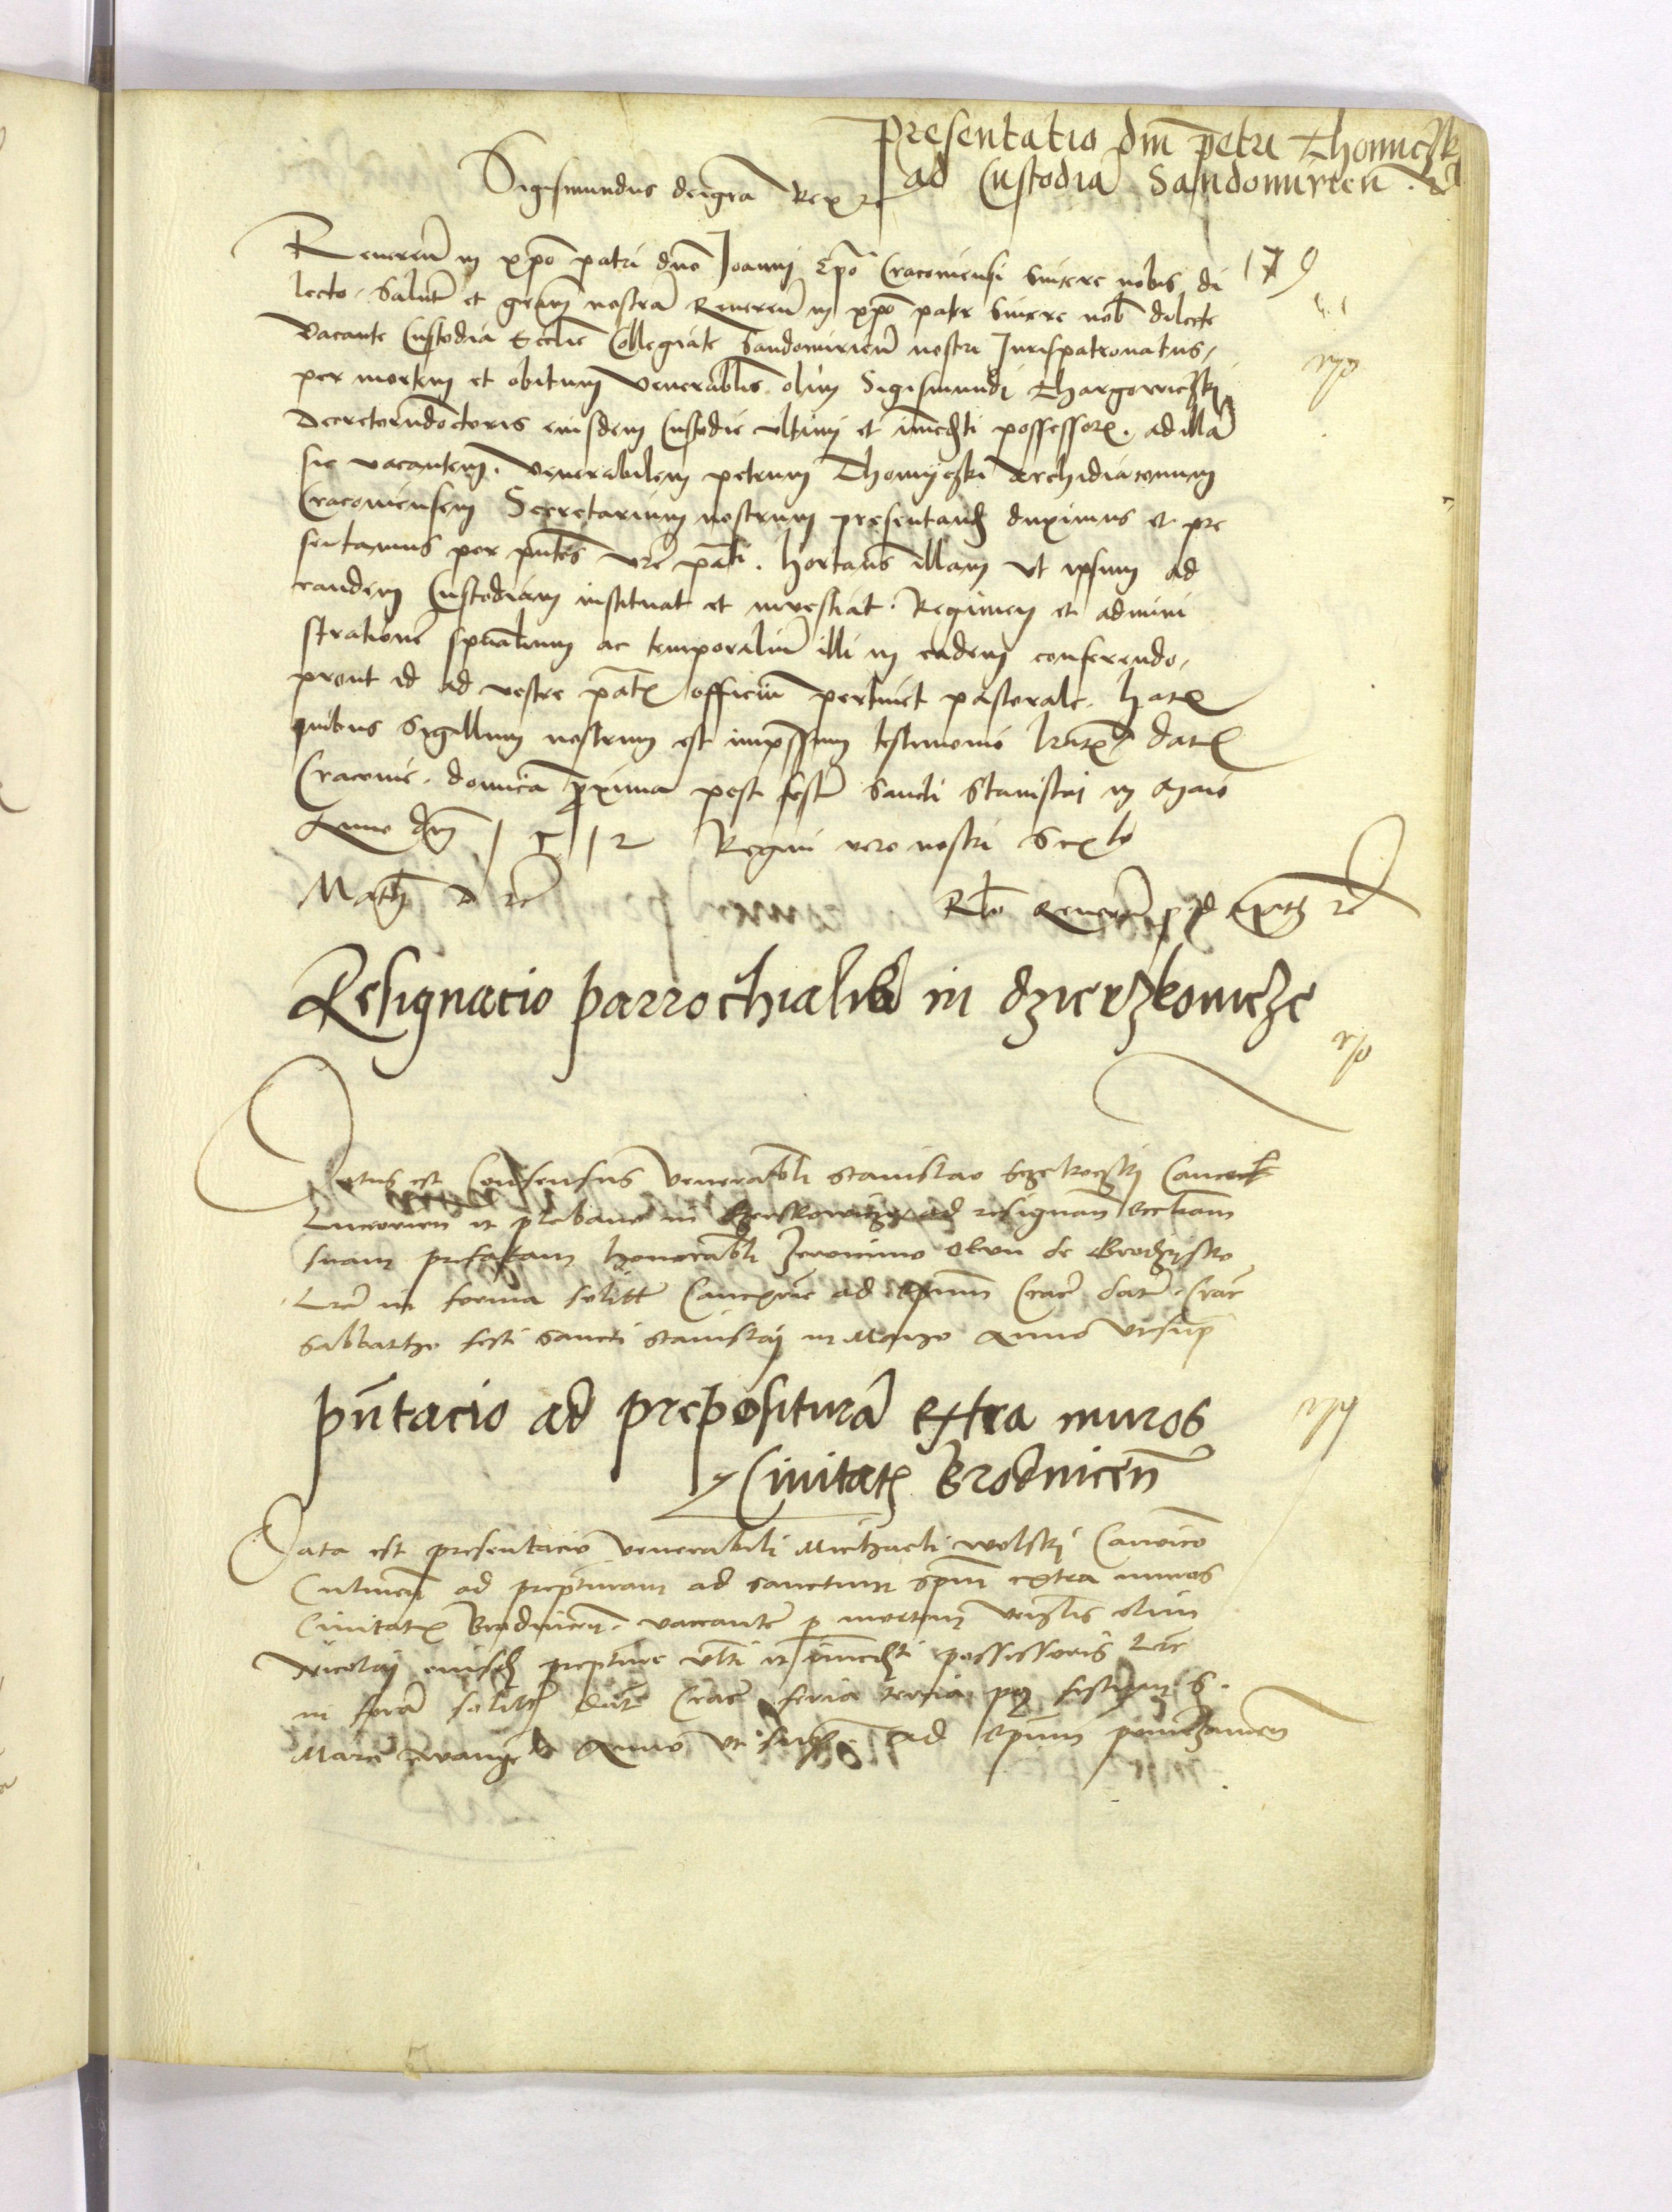 Presentatio dni Petri Thomiczki
ad Custodiã Sandomirien̄ &c
Sigismundus dei grã Rex &c
179
Reveren̄ in xpo patri dno Joanni Epo Cracoviensi sincere nobis di
lecto. Salutē et grãm nostrã Reveren̄ in xpo pater sincere nob dilecte
Vacante Custodia Ecclie Collegiate Sandomirien̄ nostri Jurispatronatus,
per mortem et obitum venerablis olim Sigismundi Thargowiczki
Decretorū doctoris eiusdem Custodie ultimi et immedti possessor. ad illã
sic vacantem. Venerabilem petrum Thomyczki Archidiaconum
Cracoviensem Secretarium nostrum presentand duximus et pre
sentamus per pntes vre pati. hortañs illam ut ipsum ad
eandem Custodiam instituat et investiat. Regimen et admini
strationē spualium ac temporaliū illi in eadem conferendo,
prout id ad vestre pat officiū pertinet pastorale. har
quibus Sigillum nostrum est impssum testimonio lrar. dat
Cracovie. domica proxima post festū Sancti Stanislai in Maio
Anno dni 1512 Regni vero nostri Sexto
Math D &c
Rlo Reveren̄
Resignacio parrochialis in dzierzkowicze
Datus est Consensus venerabli Stanislao
Luceorien et plebano in ad resignan ecclãm
suam prefatam honorabli Jeronimo de
Lre in forma solit Cancrie ad Epum Crac dat Crac
Sabbatho festi Sancti Stanislaj in Mayo Anno ut sup
pñtacio ad preposituram extra muros
Civitat Brodnicen̄
Data est presentacio venerabili Michaeli wolski Canoico
Culmen̄ ad prepturam ad sanctum spm extra muros
Civitat Brodnicen. vaccante p mortem venlis olim
Nicolaj eiusd prepture ulti et immedti possessoris Lre
in formã solit dat Crac feria tercia post festum S.
Marci Ewangel Anno ut supra. ad Epum pomezanien